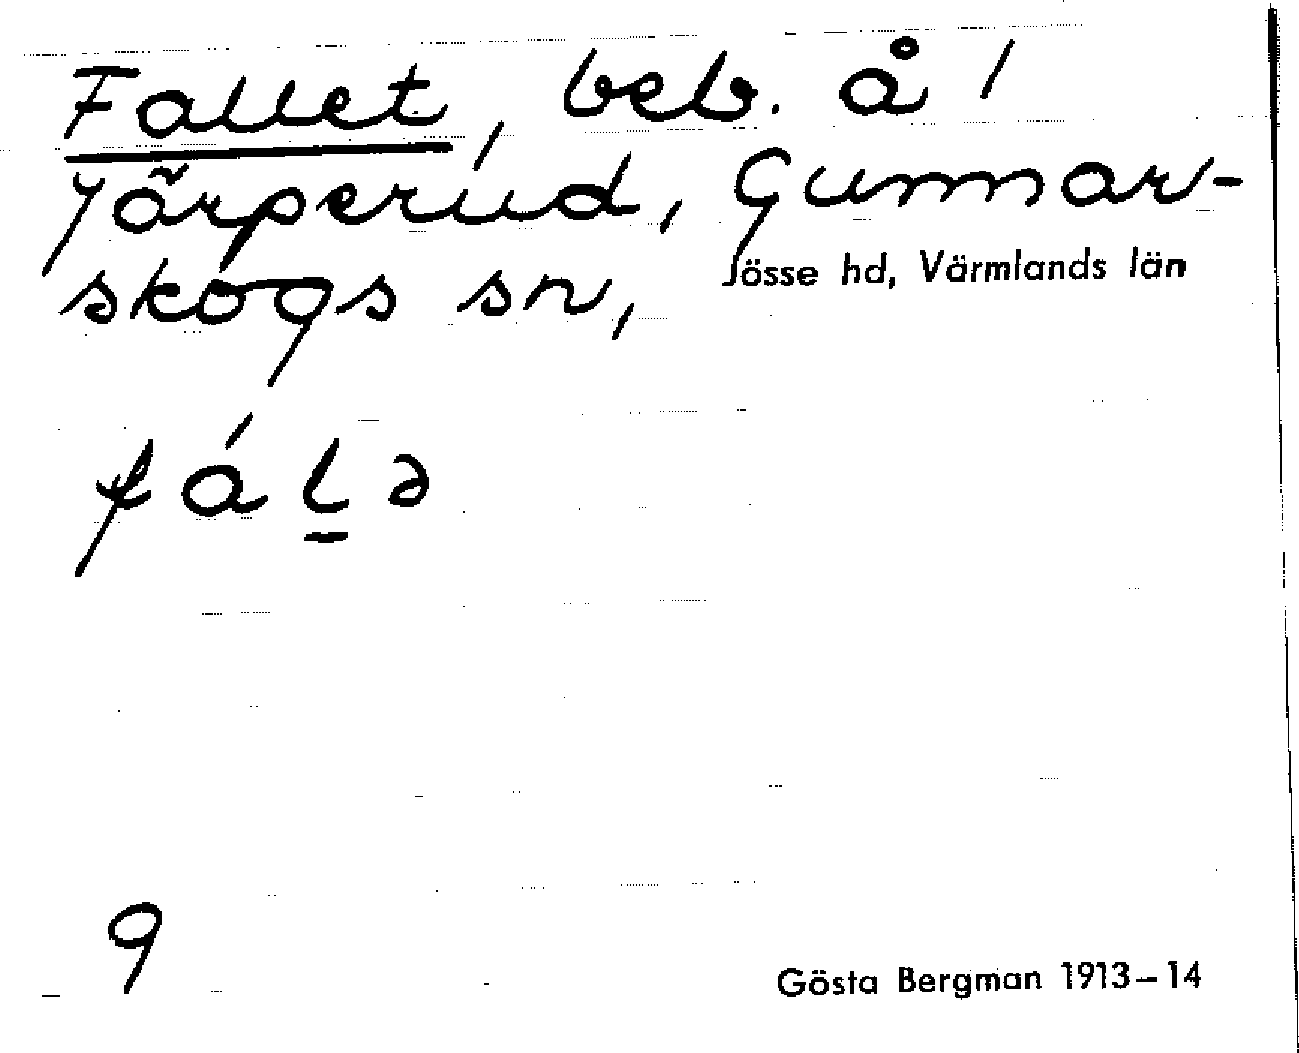 Fallet, beb. å 1
Järperud, Gunnar-
skogs sn, Jösse hd, Värmlands län
fál̲ə
9
Gösta Bergman 1913–14